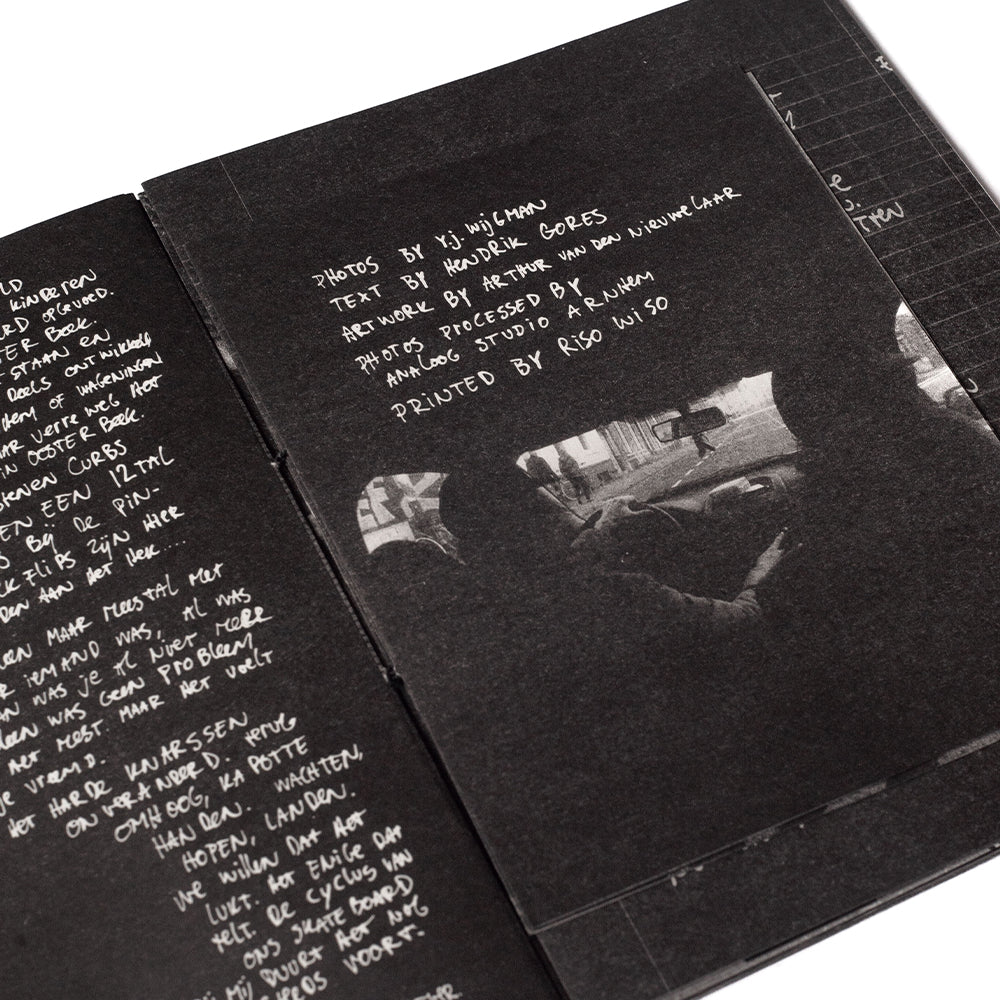 LD
KINDEREN
RD OPGEVOED.
TER BEEK.
STAAN EN
DEELS ONTWIKKELD
HEM OF WAGENINGEN
AR VERRE WEG HET
IN OOSTERBEEK.
STENEN CURBS
EN EEN 12TAL
S BIJ DE PIN-
CKFLIPS ZIJN HIER
DEN AAN HET HEK....
EEN MAAR MEESTAL MET
R IEMAND WAS, AL WAS
AN WAS JE AL NIET MEER
LEEN WAS GEEN PROBLEEM
HET MEEST MAAR HET VOELT
JE VREEMD.
HET HARDE KNARSSEN
ONVERANDERD. TERUG
OMHOOG, KAPOTTE
HANDEN. WACHTEN,
HOPEN, LANDEN.
WE WILLEN DAT HET
LUKT. HET ENIGE DAT
TELT. DE CYCLUS VAN
ONS SKATEBOARD
MIJ DUURT HET NOG
EEDS VOORT.
PHOTOS BY Y.J. WIJGMAN
TEXT BY HENDRIK GORES
ARTWORK BY ARTHUR VAN DEN NIEUWELAAR
PHOTOS PROCESSED BY
ANALOOG STUDIO ARNHEM
PRINTED BY RISO WISO